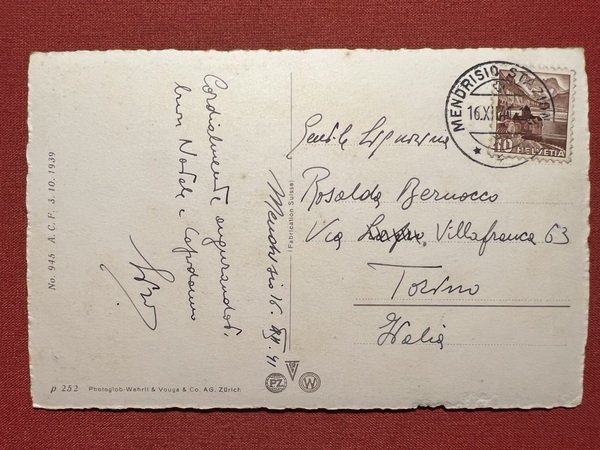 Cordialmente augurandoti
buon Natale e Capodanno
Mendrisio 16. XII. 41
Gentile Signorina
Rosalda Bernocco
Via Villafranca 63
Torino
Italia
MENDRISIO STAZIONE
16.XII
10 HELVETIA
Fabrication Suisse
No. 945 A. C. F. 3. 10. 1939
p 252 Photoglob-Wehrli & Vouga & Co. AG. Zürich
PZ
W